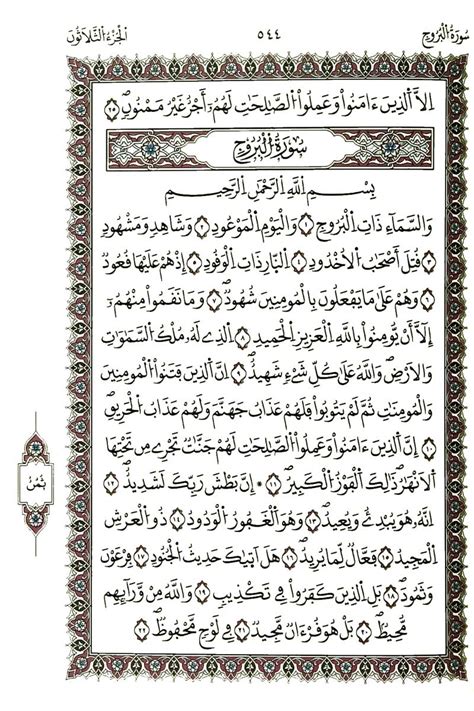 سُورَةُ الْبُرُوجِ ٥٤٤ الْجُزْءُ الثَّلَاثُونَ
إِلَّا الَّذِينَ ءَامَنُوا وَعَمِلُوا الصَّٰلِحَٰتِ لَهُمُۥٓ أَجْرٌ غَيْرُ مَمْنُونٍ ٢٥
سُورَةُ الْبُرُوجِ
بِسْمِ اللَّهِ الرَّحْمَٰنِ الرَّحِيمِ
وَالسَّمَآءِ ذَاتِ الْبُرُوجِ ١ وَالْيَوْمِ الْمَوْعُودِ ٢ وَشَاهِدٍ وَمَشْهُودٍ
٣ قُتِلَ أَصْحَٰبُ الُاخْدُودِ ٤ النّ۪ارِ ذَاتِ الْوَقُودِ ٥ إِذْ هُمْ عَلَيْهَا قُعُودٌ
٦ وَهُمْ عَلَىٰ مَا يَفْعَلُونَ بِالْمُومِنِينَ شُهُودٌ ٧ وَمَا نَقَمُوا مِنْهُمُۥٓ
إِلَّآ أَنْ يُّومِنُوا بِاللَّهِ الْعَزِيزِ الْحَمِيدِ ٨ الَّذِي لَهُۥ مُلْكُ السَّمَٰوَٰتِ
وَالَارْضِ وَاللَّهُ عَلَىٰ كُلِّ شَيْءٍ شَهِيدٌ ٩ إِنَّ الَّذِينَ فَتَنُوا الْمُومِنِينَ
وَالْمُومِنَٰتِ ثُمَّ لَمْ يَتُوبُوا فَلَهُمْ عَذَابُ جَهَنَّمَ وَلَهُمْ عَذَابُ الْحَرِيقِ
١٠ إِنَّ الَّذِينَ ءَامَنُوا وَعَمِلُوا الصَّٰلِحَٰتِ لَهُمْ جَنَّٰتٌ تَجْرِي مِن تَحْتِهَا
الَانْهَٰرُ ذَٰلِكَ الْفَوْزُ الْكَبِيرُ ١١ إِنَّ بَطْشَ رَبِّكَ لَشَدِيدٌ ١٢
إِنَّهُۥ هُوَ يُبْدِئُ وَيُعِيدُ ١٣ وَهُوَ الْغَفُورُ الْوَدُودُ ١٤ ذُو الْعَرْشِ
الْمَجِيدُ ١٥ فَعَّالٌ لِّمَا يُرِيدُ ١٦ هَلَ اَتَىٰكَ حَدِيثُ الْجُنُودِ ١٧ فِرْعَوْنَ
وَثَمُودَ ١٨ بَلِ الَّذِينَ كَفَرُوا فِي تَكْذِيبٍ ١٩ وَاللَّهُ مِنْ وَّرَآئِهِم
مُّحِيطٌ ٢٠ بَلْ هُوَ قُرْءَانٌ مَّجِيدٌ ٢١ فِي لَوْحٍ مَّحْفُوظٌ ٢٢
ثُمُنْ